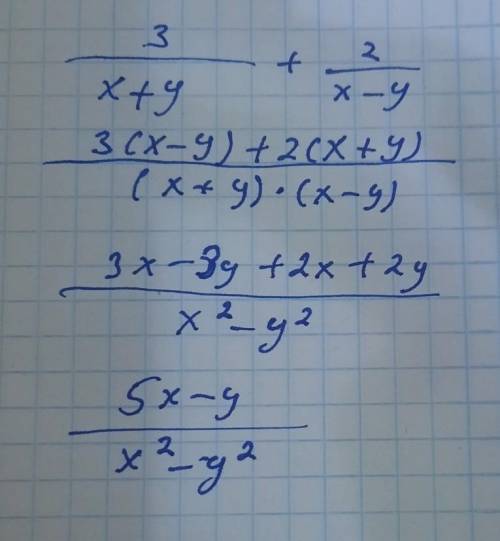 3/(x+y) + 2/(x-y)
(3(x-y)+2(x+y))/((x+y)·(x-y))
(3x-3y+2x+2y)/(x²-y²)
(5x-y)/(x²-y²)